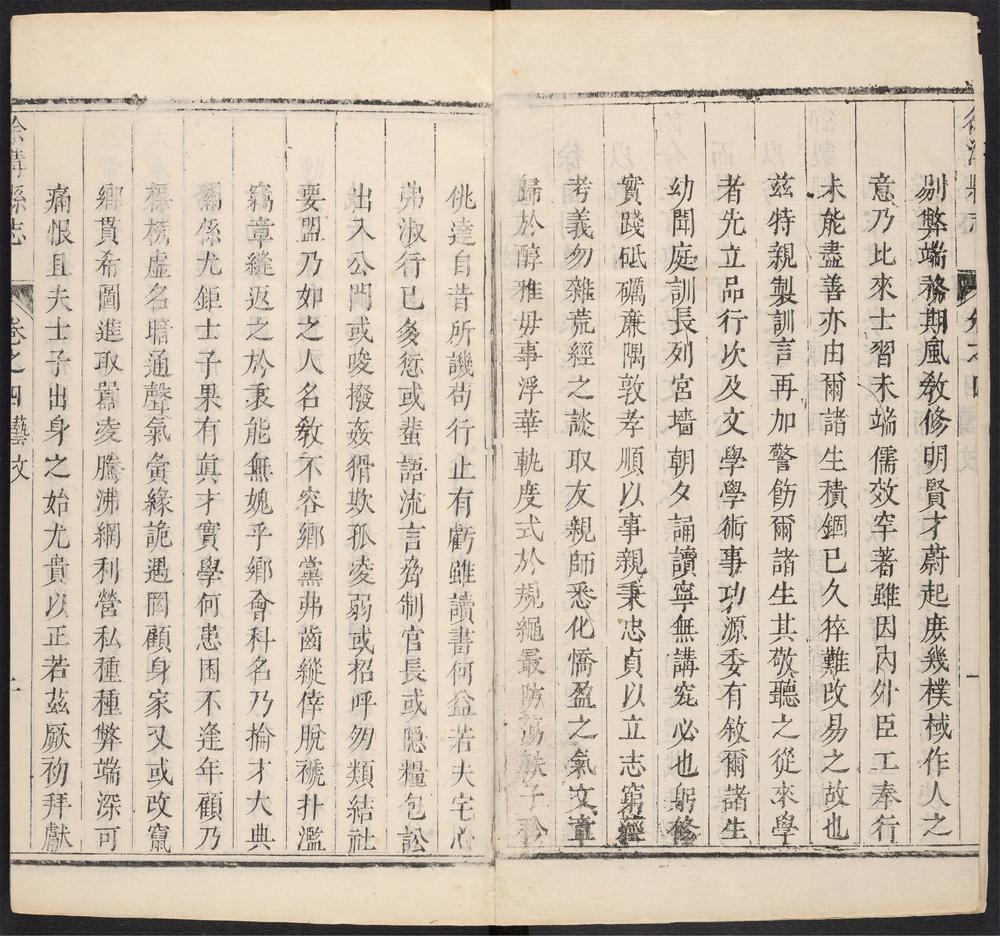 剔弊端務期風敎修明賢才蔚起庶幾樸棫作人之
意乃比來士習未端儒效罕著雖因內外臣工奉行
未能盡善亦由爾諸生積錮已久猝難改易之故也
茲特親製訓言再加警飭爾諸生其敬聽之從來學
者先立品行次及文學學術事功源委有敘爾諸生
幼聞庭訓長列宮墻朝夕誦讀寧無講究必也躬修
實踐砥礪廉隅敦孝順以事親秉忠貞以立志窮經
考義勿雜荒經之談取友親師悉化憍盈之氣文章
歸於醇雅毋事浮華軌度式於規繩最防蕩軼子衿
徐溝縣志
卷之四藝文
佻達自昔所譏苟行止有虧雖讀書何益若夫宅心
弗淑行已多愆或蜚語流言脅制官長或隱糧包訟
出入公門或唆撥姦猾欺孤凌弱或招呼朋類結社
要盟乃如之人名敎不容鄉黨弗齒縱倖脫褫扑濫
竊章縫返之於衷能無媿乎鄉會科名乃掄才大典
關係尤鉅士子果有眞才實學何患困不逢年顧乃
標榜虛名暗通聲氣夤緣詭遇罔顧身家又或改竄
鄉貫希圖進取囂凌騰沸網利營私種種弊端深可
痛恨且夫士子出身之始尤貴以正若茲厥初拜獻